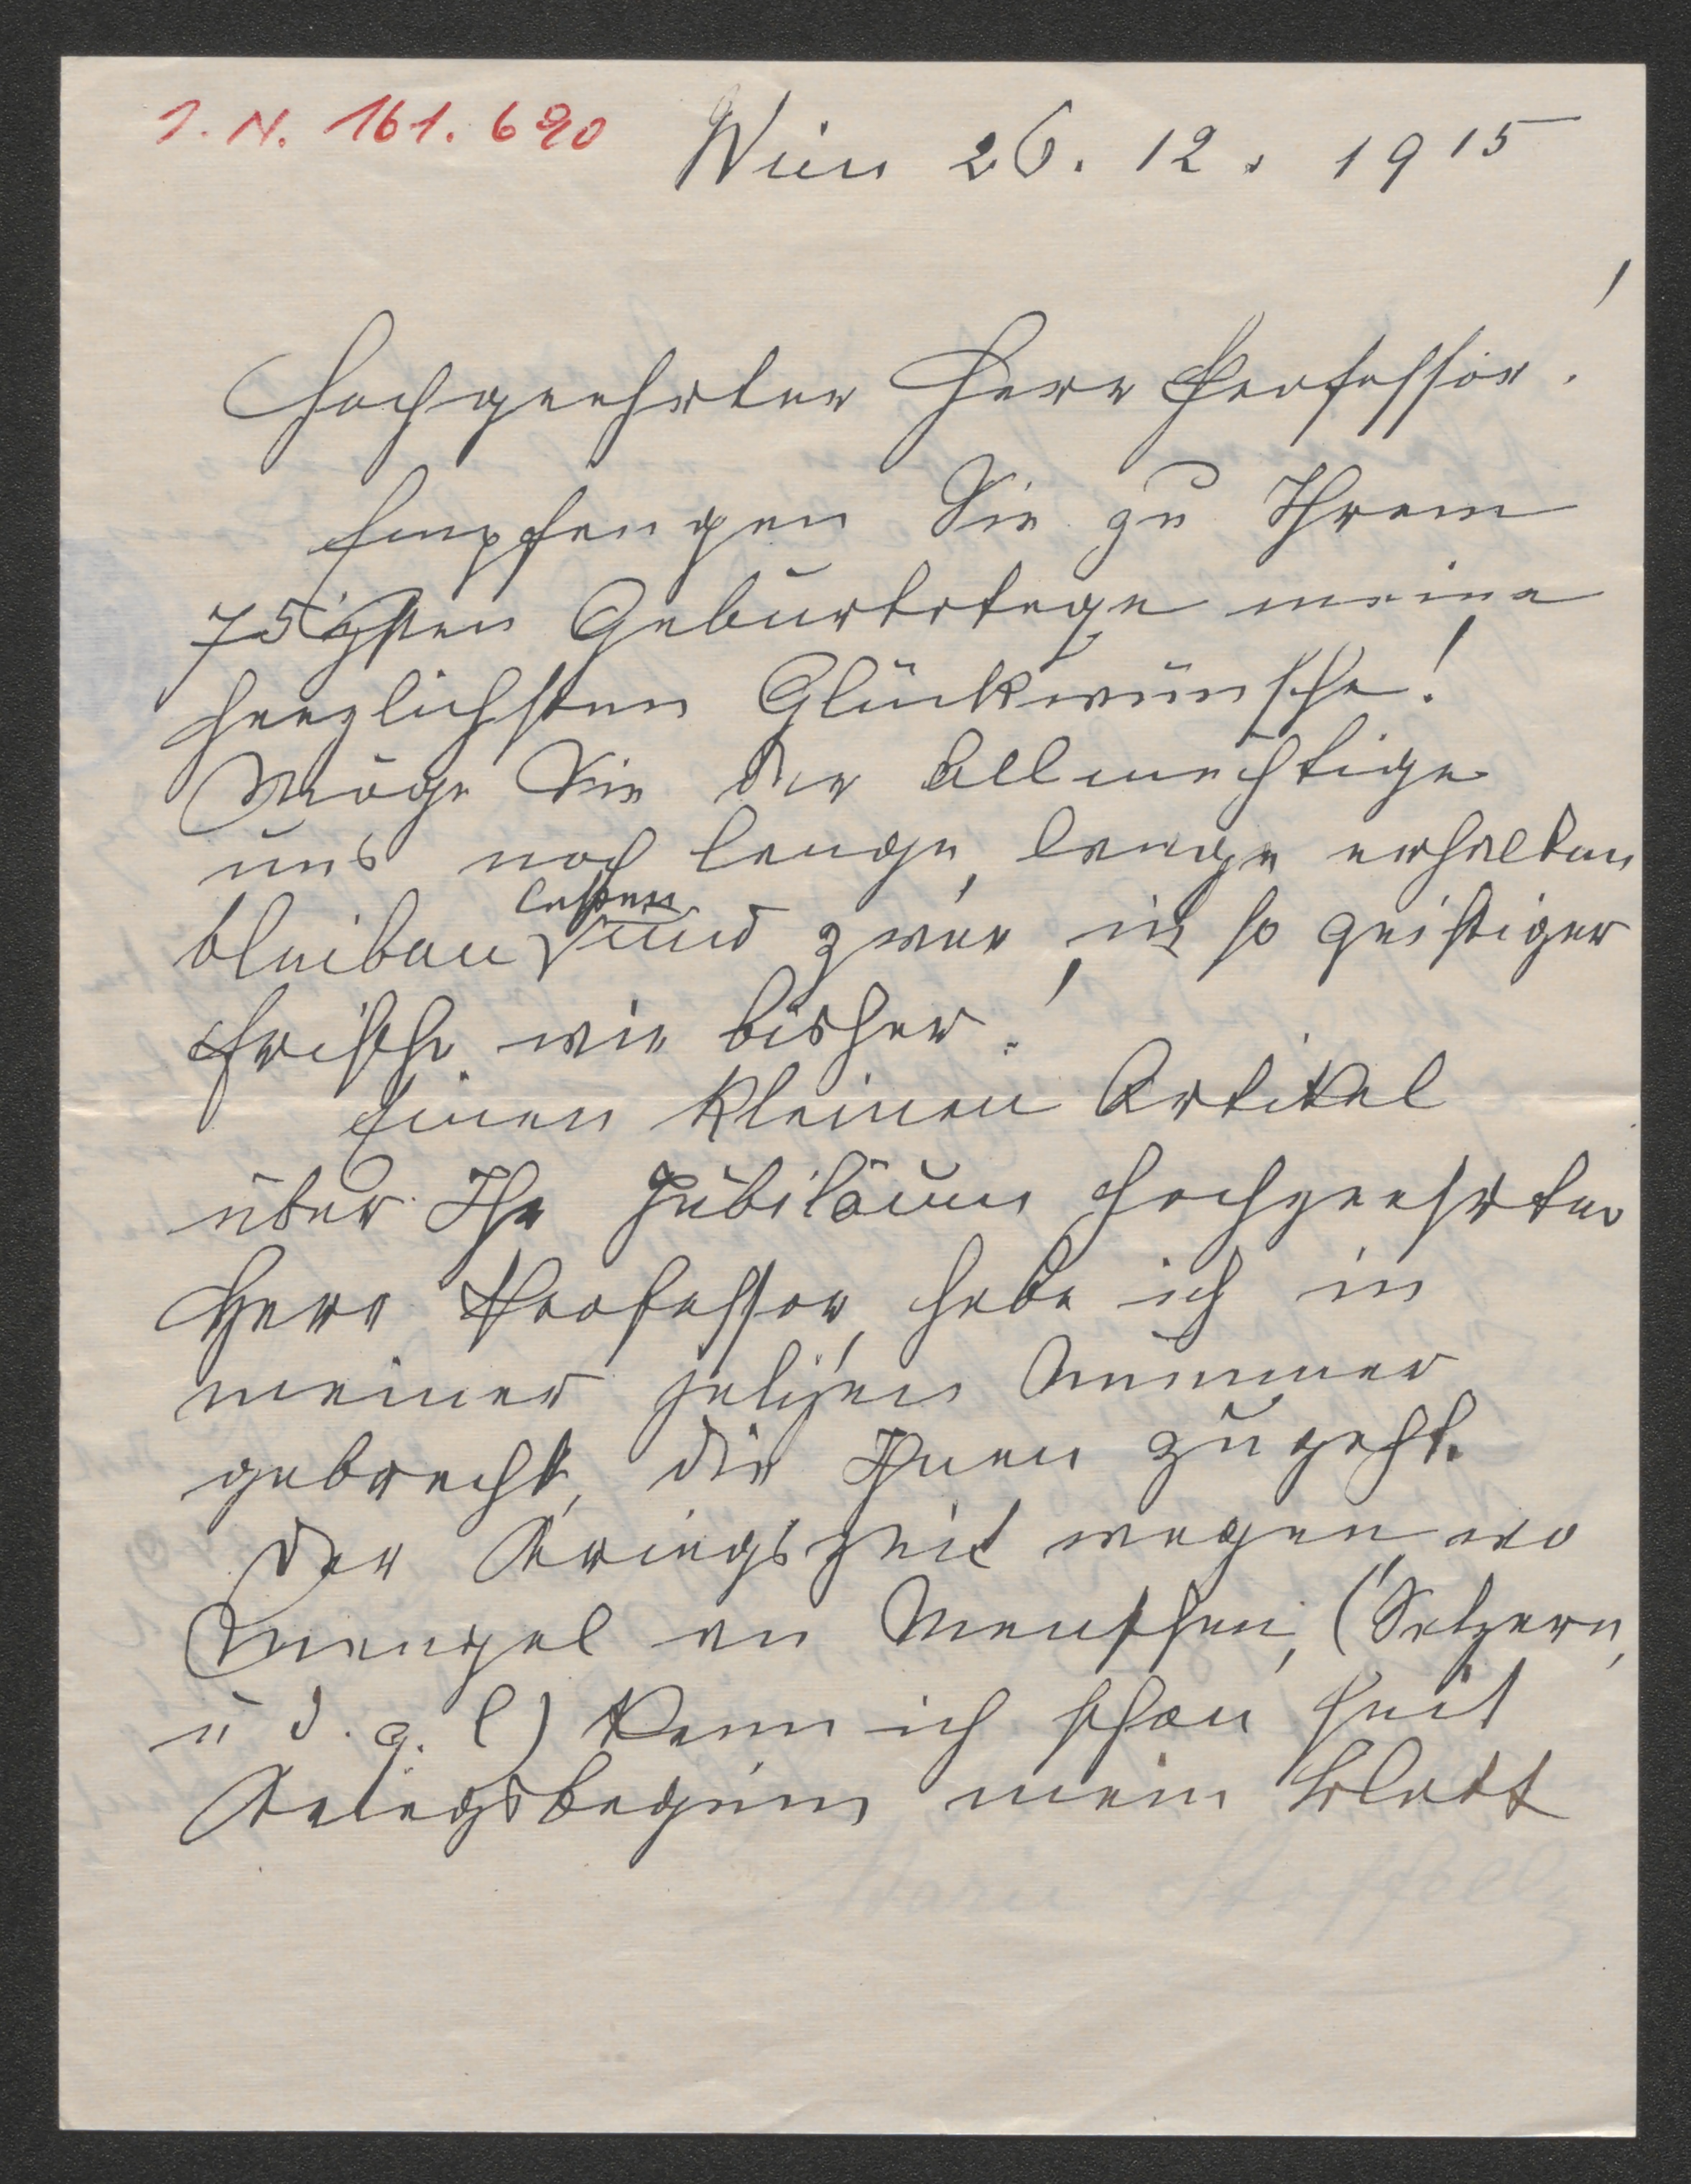 I. N. 161.690
Wien 26. 12. 1915
Hochgeehrter Herr Professor!
Empfangen Sie zu Ihrem
75igsten Geburtstage meine
herzlichsten Glückwünsche!
Möge Sie der Allmächtige
uns noch lange, lange erhalten
lassen
bleiben und zwar, in so geistiger
Frische wie bisher!
Einen kleinen Artikel
über Ihr Jubiläum hochgeehrter
Herr Professor, habe ich in
meiner Nummer
gebracht, die Ihnen zugeht.
Der Kriegszeit wegen wo
Mangel an Menschen, (Setzern,
u d. g. l) kann ich schon seit
Kriegsbeginn mein Blatt